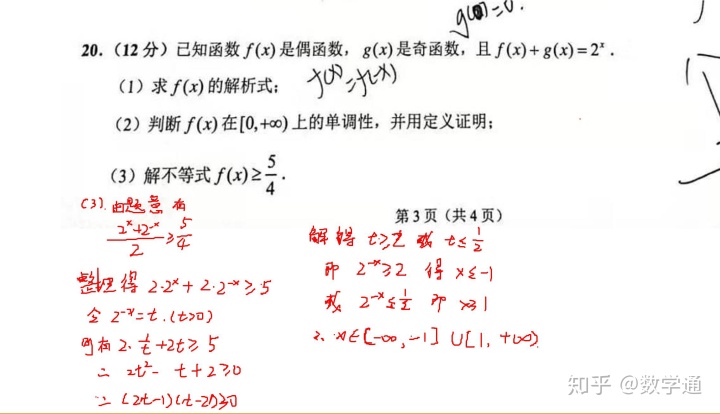 g(0)=0.
20.（12 分）已知函数 f(x) 是偶函数，g(x) 是奇函数，且 f(x)+g(x)=2ˣ．
（1）求 f(x) 的解析式；
f(x)=f(-x)
（2）判断 f(x) 在[0,+∞) 上的单调性，并用定义证明；
（3）解不等式 f(x)≥5/4．
第 3 页（共 4 页）
(3). 由题意有
(2ˣ+2⁻ˣ)/2≥5/4
整理得 2·2ˣ+2·2⁻ˣ≥5
令 2⁻ˣ=t.(t>0)
则有 2·1/t+2t≥5
∴ 2t²- t+2≥0
∴ (2t-1)(t-2)≥0
解得 t≥2 或 t≤1/2
即 2⁻ˣ≥2 得 x≤-1
或 2⁻ˣ≤1/2 即 x≥1
∴ x∈[-∞,-1]∪[1,+∞)
知乎 @数学通